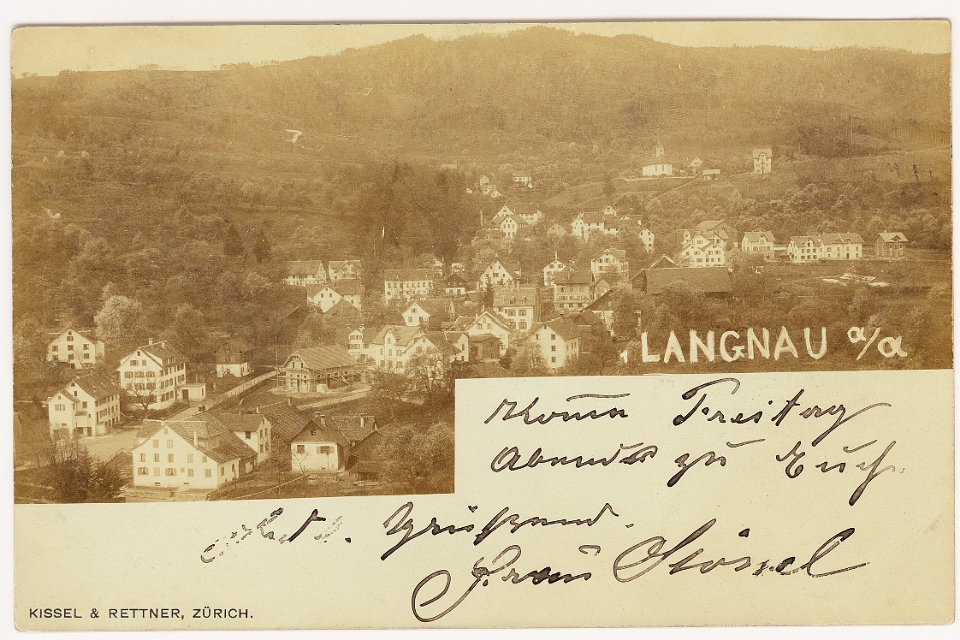 LANGNAU a/a
Komm Freitag
Abends zu Euch.
Grüßend.
Frau Stössel
KISSEL & RETTNER, ZÜRICH.